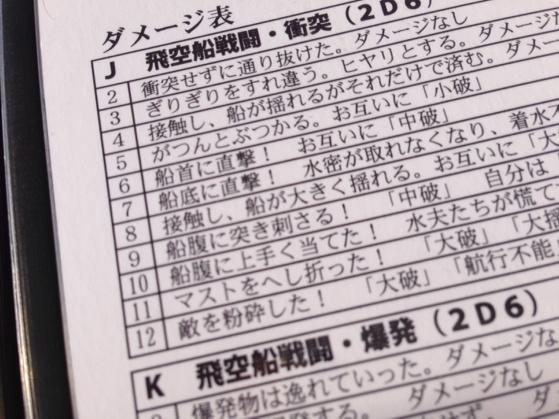 ダメージ表
J 飛空船戦闘・衝突（2D6）
2 衝突せずに通り抜けた。ダメージなし
3 ぎりぎりをすれ違う。ヒヤリとする。ダメージ
4 接触し、船が揺れるがそれだけで済む。ダメー
5 がつんとぶつかる。お互いに「小破」
6 船首に直撃！ お互いに「中破」
7 船底に直撃！ 水密が取れなくなり、着水
8 接触し、船が大きく揺れる。お互いに「大
9 船腹に突き刺さる！ 「中破」 自分は
10 船腹に上手く当てた！ 水夫たちが慌て
11 マストをへし折った！ 「大破」「大
12 敵を粉砕した！ 「大破」「航行不能
K 飛空船戦闘・爆発（2D6）
爆発物は逸れていった。ダメージな
ダメージなし